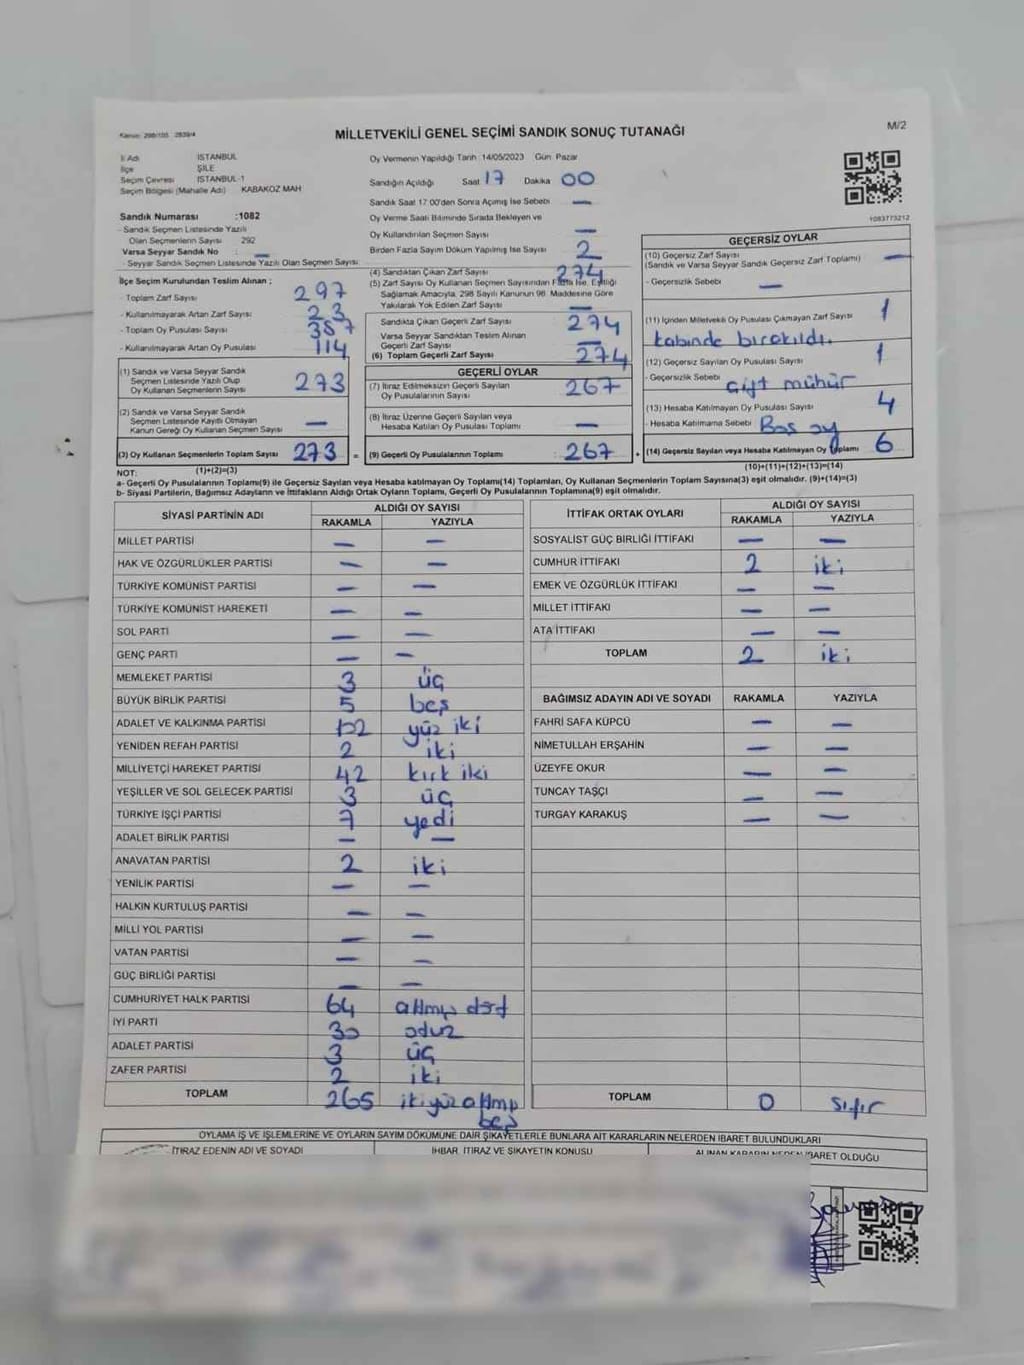 Kanun: 298/105 2839/4
MİLLETVEKİLİ GENEL SEÇİMİ SANDIK SONUÇ TUTANAĞI
M/2
İl Adı İSTANBUL
İlçe ŞİLE
Seçim Çevresi İSTANBUL-1
Seçim Bölgesi (Mahalle Adı) KABAKOZ MAH
Oy Vermenin Yapıldığı Tarih 14/05/2023 Gün Pazar
Sandığın Açıldığı Saat 17 Dakika 00
Sandık Saat 17.00'den Sonra Açılmış İse Sebebi —
Oy Verme Saati Bitiminde Sırada Bekleyen ve
Oy Kullandırılan Seçmen Sayısı —
Birden Fazla Sayım Döküm Yapılmış İse Sayısı 2
1083773212
Sandık Numarası :1082
- Sandık Seçmen Listesinde Yazılı
Olan Seçmenlerin Sayısı 292
Varsa Seyyar Sandık No : —
- Seyyar Sandık Seçmen Listesinde Yazılı Olan Seçmen Sayısı:
İlçe Seçim Kurulundan Teslim Alınan ;
- Toplam Zarf Sayısı 297
- Kullanılmayarak Artan Zarf Sayısı 23
- Toplam Oy Pusulası Sayısı 387
- Kullanılmayarak Artan Oy Pusulası 114
(1) Sandık ve Varsa Seyyar Sandık
Seçmen Listesinde Yazılı Olup
Oy Kullanan Seçmenlerin Sayısı 273
(2) Sandık ve Varsa Seyyar Sandık
Seçmen Listesinde Kayıtlı Olmayan
Kanun Gereği Oy Kullanan Seçmen Sayısı —
(3) Oy Kullanan Seçmenlerin Toplam Sayısı 273 =
(4) Sandıktan Çıkan Zarf Sayısı 274
(5) Zarf Sayısı Oy Kullanan Seçmen Sayısından Fazla İse, Eşitliği
Sağlamak Amacıyla, 298 Sayılı Kanunun 98. Maddesine Göre
Yakılarak Yok Edilen Zarf Sayısı —
Sandıkta Çıkan Geçerli Zarf Sayısı 274
Varsa Seyyar Sandıktan Teslim Alınan
Geçerli Zarf Sayısı —
(6) Toplam Geçerli Zarf Sayısı 274
GEÇERLİ OYLAR
(7) İtiraz Edilmeksizin Geçerli Sayılan
Oy Pusulalarının Sayısı 267
(8) İtiraz Üzerine Geçerli Sayılan veya
Hesaba Katılan Oy Pusulası Toplamı —
(9) Geçerli Oy Pusulalarının Toplamı 267 +
GEÇERSİZ OYLAR
(10) Geçersiz Zarf Sayısı
(Sandık ve Varsa Seyyar Sandık Geçersiz Zarf Toplamı) —
- Geçersizlik Sebebi —
(11) İçinden Milletvekili Oy Pusulası Çıkmayan Zarf Sayısı 1
kabinde bırakıldı.
(12) Geçersiz Sayılan Oy Pusulası Sayısı 1
- Geçersizlik Sebebi çift mühür
(13) Hesaba Katılmayan Oy Pusulası Sayısı 4
- Hesaba Katılmama Sebebi Boş oy
(14) Geçersiz Sayılan veya Hesaba Katılmayan Oy Toplamı 6
NOT: (1)+(2)=(3) (10)+(11)+(12)+(13)=(14)
a- Geçerli Oy Pusulalarının Toplamı(9) ile Geçersiz Sayılan veya Hesaba katılmayan Oy Toplamı(14) Toplamları, Oy Kullanan Seçmenlerin Toplam Sayısına(3) eşit olmalıdır. (9)+(14)=(3)
b- Siyasi Partilerin, Bağımsız Adayların ve İttifakların Aldığı Ortak Oyların Toplamı, Geçerli Oy Pusulalarının Toplamına(9) eşit olmalıdır.
SİYASİ PARTİNİN ADI ALDIĞI OY SAYISI
RAKAMLA YAZIYLA
MİLLET PARTİSİ — —
HAK VE ÖZGÜRLÜKLER PARTİSİ — —
TÜRKİYE KOMÜNİST PARTİSİ — —
TÜRKİYE KOMÜNİST HAREKETİ — —
SOL PARTİ — —
GENÇ PARTİ — —
MEMLEKET PARTİSİ 3 üç
BÜYÜK BİRLİK PARTİSİ 5 beş
ADALET VE KALKINMA PARTİSİ 102 yüz iki
YENİDEN REFAH PARTİSİ 2 iki
MİLLİYETÇİ HAREKET PARTİSİ 42 kırk iki
YEŞİLLER VE SOL GELECEK PARTİSİ 3 üç
TÜRKİYE İŞÇİ PARTİSİ 7 yedi
ADALET BİRLİK PARTİSİ — —
ANAVATAN PARTİSİ 2 iki
YENİLİK PARTİSİ — —
HALKIN KURTULUŞ PARTİSİ — —
MİLLİ YOL PARTİSİ — —
VATAN PARTİSİ — —
GÜÇ BİRLİĞİ PARTİSİ — —
CUMHURİYET HALK PARTİSİ 64 altmış dört
İYİ PARTİ 30 otuz
ADALET PARTİSİ 3 üç
ZAFER PARTİSİ 2 iki
TOPLAM 265 iki yüz altmış
beş
İTTİFAK ORTAK OYLARI ALDIĞI OY SAYISI
RAKAMLA YAZIYLA
SOSYALİST GÜÇ BİRLİĞİ İTTİFAKI — —
CUMHUR İTTİFAKI 2 iki
EMEK VE ÖZGÜRLÜK İTTİFAKI — —
MİLLET İTTİFAKI — —
ATA İTTİFAKI — —
TOPLAM 2 iki
BAĞIMSIZ ADAYIN ADI VE SOYADI RAKAMLA YAZIYLA
FAHRİ SAFA KÜPCÜ — —
NİMETULLAH ERŞAHİN — —
ÜZEYFE OKUR — —
TUNCAY TAŞÇI — —
TURGAY KARAKUŞ — —
TOPLAM 0 sıfır
OYLAMA İŞ VE İŞLEMLERİNE VE OYLARIN SAYIM DÖKÜMÜNE DAİR ŞİKAYETLERLE BUNLARA AİT KARARLARIN NELERDEN İBARET BULUNDUKLARI
İTİRAZ EDENİN ADI VE SOYADI İHBAR, İTİRAZ VE ŞİKAYETİN KONUSU ALINAN KARARIN NEDEN İBARET OLDUĞU